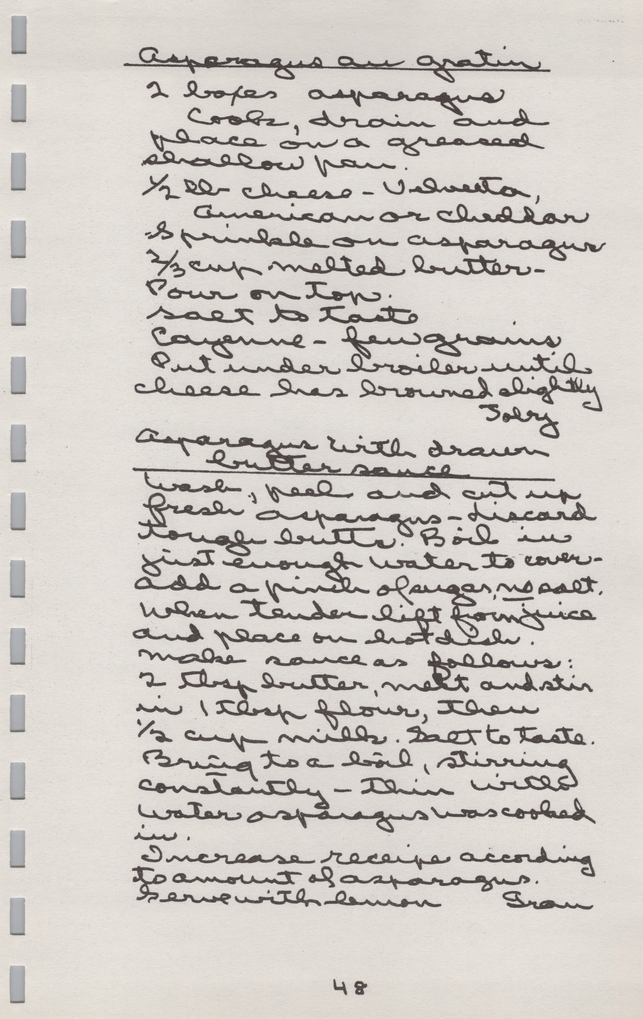 Asparagus au gratin
2 boxes asparagus
Cook, drain and
place on a greased
shallow pan.
1/2 lb cheese - Velveeta,
American or cheddar
Sprinkle on asparagus
2/3 cup melted butter-
Pour on top.
salt to taste
Cayenne - few grains
Put under broiler until
cheese has browned slightly
Toby
Asparagus with drawn
butter sauce
Wash, peel and cut up
fresh asparagus - discard
tough butts. Boil in
just enough water to cover-
add a pinch of sugar, no salt.
When tender lift form juice
and place on hot dish.
Make sauce as follows:
2 tbsp butter, melt and stir
in 1 tbsp flour, then
1/2 cup milk. Salt to taste.
Bring to a boil, stirring
constantly - thin with
water asparagus was cooked
in.
Increase receipe according
to amount of asparagus.
Serve with lemon Gran
48